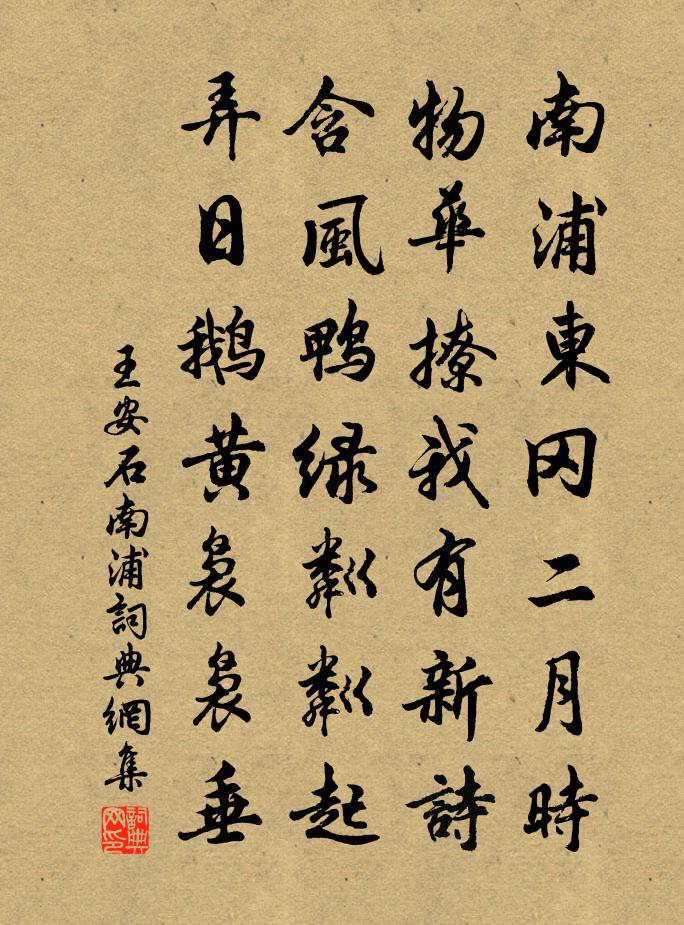 南浦東冈二月時
物華撩我有新詩
含風鴨绿粼粼起
弄日鹅黄裊裊垂
王安石南浦詞典網集
詞典网印